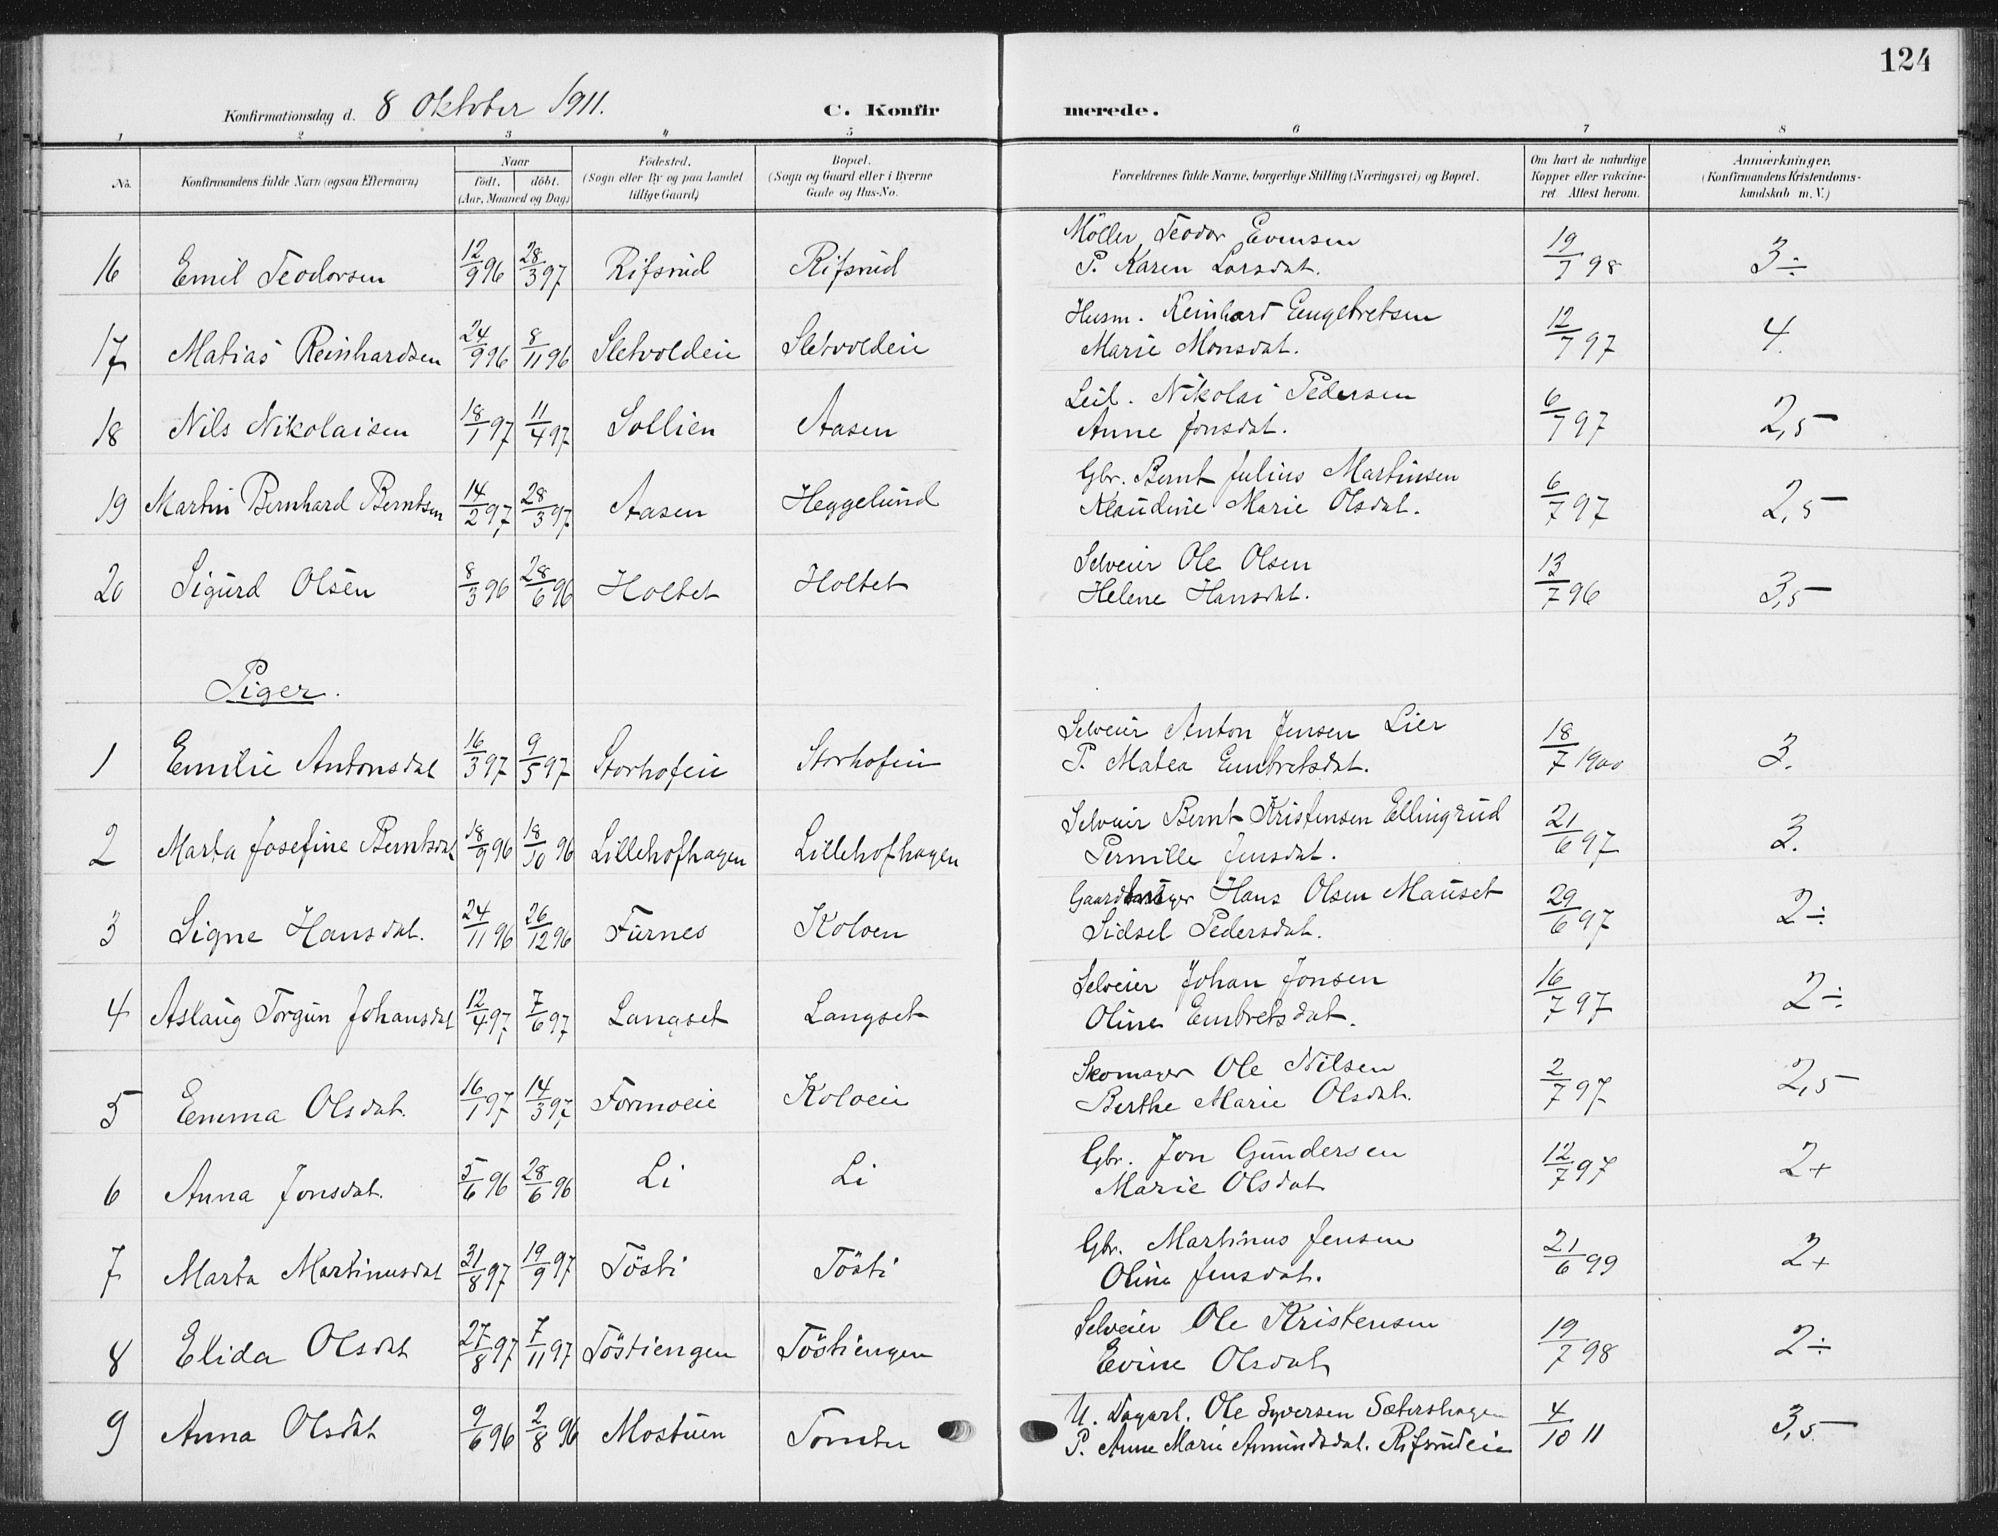 124
Konfirmationsdag d. 8 Oktober 1911. C. Konfir merede.
1 2 3 4 5 6 7 8
No. Konfirmandens fulde Navn (ogsaa Efternavn) Naar födt. döbt. (Aar, Maaned og Dag) Födested. (Sogn eller By og paa Landet tillige Gaard) Bopæl. (Sogn og Gaard eller i Byerne Gade og Hus-No. Forældrenes fulde Navne, borgerlige Stilling (Næringsvei) og Bopæl. Om havt de naturlige Kopper eller vakcineret Attest herom. Anmærkninger. (Konfirmandens Kristendomskundskab m. V.)
16 Emil Teodorsen 12/9 96 28/3 97 Rifsrud Rifsrud Möller Teodor Evensen 19/7 98 3÷
P. Karen Larsdat.
17 Matias Reinhardsen 24/9 96 8/11 96 Sletvoldeie Sletvoldeie Husm. Reinhard Engebretsen 12/7 97 4.
Marie Monsdat.
18 Nils Nikolaisen 18/1 97 11/4 97 Sollien Aasen Leil. Nikolai Pedersen 6/7 97 2,5
Anne Jonsdat.
19 Martin Bernhard Berntsen 14/2 97 28/3 97 Aasen Heggelund Gbr. Bernt Julius Martinsen 6/7 97 2,5
Klaudine Marie Olsdat.
20 Sigurd Olsen 8/3 96 28/6 96 Holtet Holtet Selveier Ole Olsen 13/7 96 3,5
Helene Hansdat.
Piger.
1 Emilie Antonsdat 16/3 97 9/5 97 Storhofeie Storhofeie Selveier Anton Jensen Lier 18/7 1900 3.
P. Matea Embretsdat.
2 Marta Josefine Berntsdat 18/9 96 18/10 96 Lillehofhagen Lillehofhagen Selveier Bernt Kristensen Ellingrud 21/6 97 3.
Pernille Jensdat.
3 Signe Hansdat. 24/11 96 26/12 96 Furnes Koloen Hans Olsen Mauset 29/6 97 2÷
Sidsel Pedersdat.
4 Aslaug Torgun Johansdat 12/4 97 7/6 97 Langset Langset Selveier Johan Jonsen 16/7 97 2÷
Oline Embretsdat.
5 Emma Olsdat. 16/1 97 14/3 97 Formoeie Koloeie Skomager Ole Nilsen 2/7 97 2,5
Berthe Marie Olsdat.
6 Anna Jonsdat. 5/6 96 28/6 96 Li Li Gbr. Jon Gundersen 12/7 97 2+
Marie Olsdat
7 Marta Martinusdat 31/8 97 19/9 97 Tösti Tösti Gbr. Martinus Jensen 21/6 99 2+
Oline Jensdat.
8 Elida Olsdat 27/8 97 7/11 97 Töstiengen Töstiengen Selveier Ole Kristensen 19/7 98 2÷
Evine Olsdat
9 Anna Olsdat 9/6 96 2/8 96 Mostuen Tomter U. Dagarb. Ole Syversen Sætershagen 4/10 11 3,5
P. Anne Marie Amundsdat. Rifsrudeie